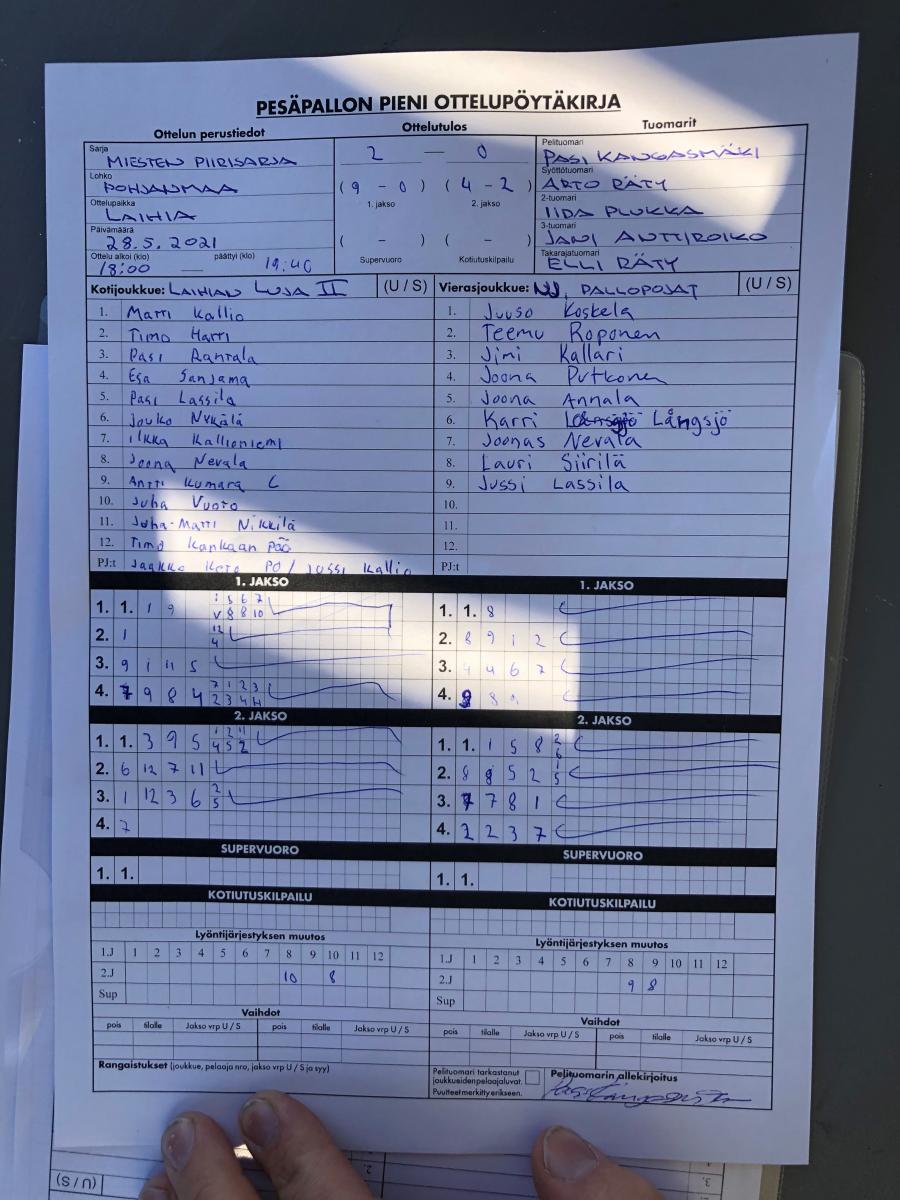 PESÄPALLON PIENI OTTELUPÖYTÄKIRJA
Ottelun perustiedot Ottelutulos Tuomarit
Sarja
MIESTEN PIIRISARJA
Lohko
POHJANMAA
Ottelupaikka
LAIHIA
Päivämäärä
28.5.2021
Ottelu alkoi (klo) päättyi (klo)
18:00 — 19:40
2 — 0
(9 - 0) (4 - 2)
1. jakso 2. jakso
( - ) ( - )
Supervuoro Kotiutuskilpailu
Pelituomari
PASI KANGASMÄKI
Syöttötuomari
ARTO RÄTY
2-tuomari
IIDA PLUKKA
3-tuomari
JANI ANTTIROIKO
Takarajatuomari
ELLI RÄTY
Kotijoukkue: LAIHIAN LUJA II (U / S)
1. Matti Kallio
2. Timo Harri
3. Pasi Rantala
4. Esa Sanjama
5. Pasi Lassila
6. Jouko Nykälä
7. Ilkka Kallioniemi
8. Joona Nevala
9. Antti Kumara C
10. Juha Vuoto
11. Juha-Matti Nikkilä
12. Timo Kankaan pää
PJ:t Jaakko Keto PO / Jussi Kallio
Vierasjoukkue: NJ, PALLOPOJAT (U / S)
1. Juuso Koskela
2. Teemu Roponen
3. Jimi Kallari
4. Joona Putkonen
5. Joona Annala
6. Karri Långsjö
7. Joonas Nevala
8. Lauri Siirilä
9. Jussi Lassila
10.
11.
12.
PJ:t
1. JAKSO
1. 1. 1 9 5 6 7
8 8 10
2. 1 12
4
3. 9 1 11 5
4. 7 9 8 4 7 1 2 3
2 3 4 11
1. JAKSO
1. 1. 8
2. 8 9 1 2
3. 4 4 6 7
4. 9 8
2. JAKSO
1. 1. 3 9 5 1 2 11
4 5 2
2. 6 12 7 11
3. 1 12 3 6 2
5
4. 7
2. JAKSO
1. 1. 1 5 8 2
6
2. 8 8 5 2 1
5
3. 7 7 8 1
4. 2 2 3 7
SUPERVUORO
1. 1.
SUPERVUORO
1. 1.
KOTIUTUSKILPAILU
KOTIUTUSKILPAILU
Lyöntijärjestyksen muutos
1.J 1 2 3 4 5 6 7 8 9 10 11 12
2.J 10 8
Sup
Lyöntijärjestyksen muutos
1.J 1 2 3 4 5 6 7 8 9 10 11 12
2.J 9 8
Sup
Vaihdot
pois tilalle Jakso vrp U / S pois tilalle Jakso vrp U / S
Vaihdot
pois tilalle Jakso vrp U / S pois tilalle Jakso vrp U / S
Rangaistukset (joukkue, pelaaja nro, jakso vrp U / S ja syy)
Pelituomari tarkastanut
joukkueiden pelaajaluvat.
Puutteet merkitty erikseen.
Pelituomarin allekirjoitus
(U / S)